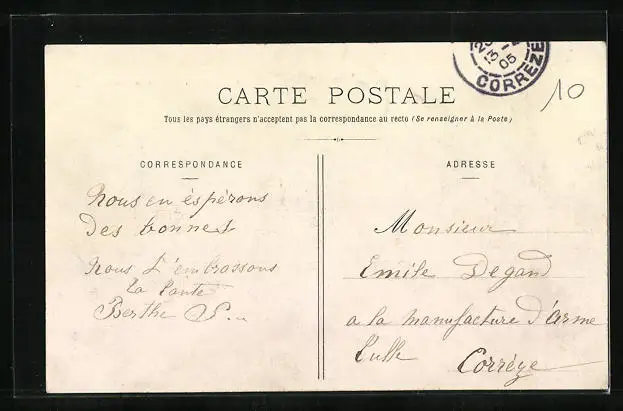 CARTE POSTALE
Tous les pays étrangers n'acceptent pas la correspondance au recto (Se renseigner à la Poste)
CORRESPONDANCE
ADRESSE
13
05
CORREZE
10
Nous en éspérons
Des bonnes
Nous t'embrassons
ta tante
Berthe P...
Monsieur
Emile Degand
a la manufacture d'arme
Tulle Corrèze